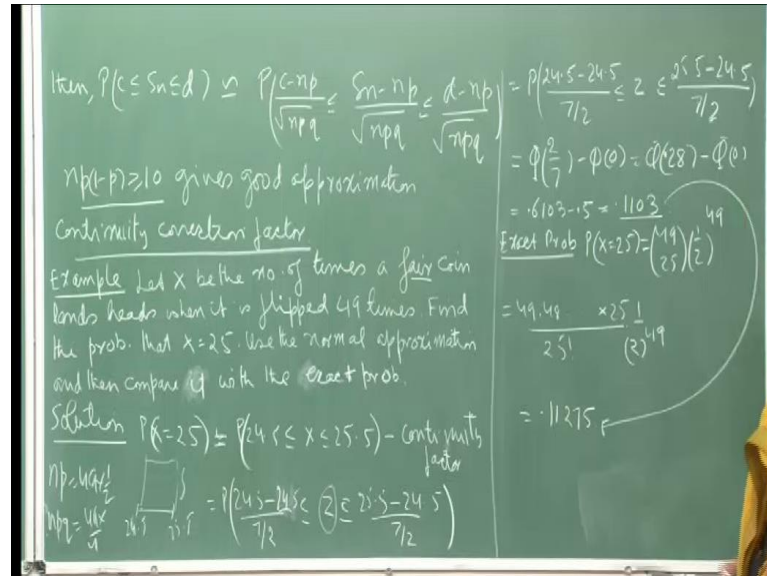 then, P(c ≤ Sn ≤ d) ≃ P(c-np/√npq ≤ Sn-np/√npq ≤ d-np/√npq)
np(1-p) ≥ 10 gives good approximation
Continuity correction factor
Example Let X be the no. of times a fair coin
lands heads when it is flipped 49 times. Find
the prob. that X=25. Use the normal approximation
and then compare it with the exact prob.
Solution P(X=25) ≃ P(24.5 ≤ X ≤ 25.5) - Continuity
factor
np = 49×1/2
npq = 49×/4
24.5 25.5
= P(24.5-24.5/7/2 ≤ Z ≤ 25.5-24.5/7/2)
= P(24.5-24.5/7/2 ≤ Z ≤ 25.5-24.5/7/2)
= Φ(2/7) - Φ(0) = Φ(.28) - Φ(0)
= .6103-.5 = .1103
Exact Prob P(X=25) = (49 25)(1/2)^49
= 49.48 ×25/25! 1/(2)^49
= .11275